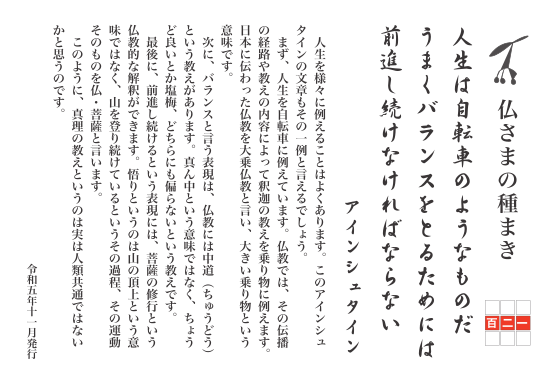 仏さまの種まき
百二一
人生は自転車のようなものだ
うまくバランスをとるためには
前進し続けなければならない
アインシュタイン
人生を様々に例えることはよくあります。このアインシュ
タインの文章もその一例と言えるでしょう。
まず、人生を自転車に例えています。仏教では、その伝播
の経路や教えの内容によって釈迦の教えを乗り物に例えます。
日本に伝わった仏教を大乗仏教と言い、大きい乗り物という
意味です。
次に、バランスと言う表現は、仏教には中道（ちゅうどう）
という教えがあります。真ん中という意味ではなく、ちょう
ど良いとか塩梅、どちらにも偏らないという教えです。
最後に、前進し続けるという表現には、菩薩の修行という
仏教的な解釈ができます。悟りというのは山の頂上という意
味ではなく、山を登り続けているというその過程、その運動
そのものを仏・菩薩と言います。
このように、真理の教えというのは実は人類共通ではない
かと思うのです。
令和五年十一月発行